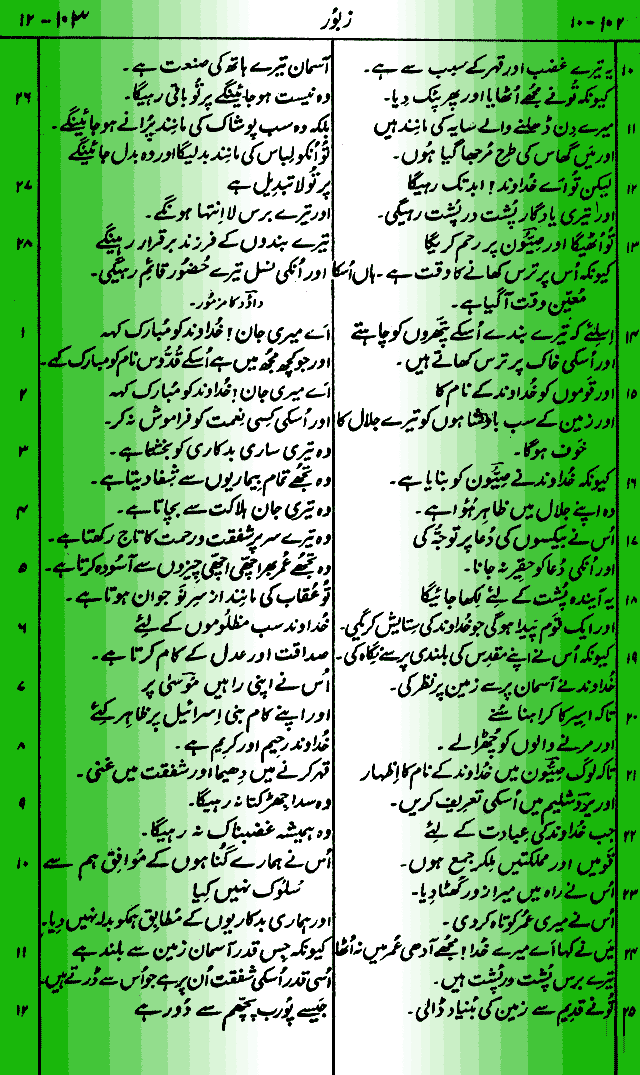 ۱۰۲-۱۰ زبُور ۱۰۳-۱۲
۱۰ یہ تیرے غضب اور قہر کے سبب سے ہے۔
کیونکہ تُو نے مجھے اُٹھایا اور پھر پٹک دِیا۔
۱۱ میرے دِن ڈھلنے والے سایہ کی مانند ہیں
اور مَیں گھاس کی طرح مُرجھا گیا ہُوں۔
۱۲ لیکن تُو اَے خُداوند! ابد تک رہیگا
اور تیری یادگار پُشت در پُشت رہیگی۔
۱۳ تُو اُٹھیگا اور صِیُّون پر رحم کریگا
کیونکہ اُس پر ترس کھانے کا وقت ہے۔ ہاں اُسکا
مُعیّن وقت آ گیا ہے۔
۱۴ اِسلئے کہ تیرے بندے اُسکے پتھّروں کو چاہتے
اور اُسکی خاک پر ترس کھاتے ہیں۔
۱۵ اور قَوموں کو خُداوند کے نام کا
اور زمین کے سب بادشاہوں کو تیرے جلال کا
خَوف ہوگا۔
۱۶ کیونکہ خُداوند نے صِیُّون کو بنایا ہے۔
وہ اپنے جلال میں ظاہر ہُؤا ہے۔
۱۷ اُس نے بیکسوں کی دُعا پر توجُّہ کی
اور اُنکی دُعا کو حقیر نہ جانا۔
۱۸ یہ آیندہ پُشت کے لئے لِکھا جائیگا
اور ایک قَوم پَیدا ہوگی جو خُداوند کی ستایش کریگی۔
۱۹ کیونکہ اُس نے اپنے مقدِس کی بلندی پر سے نِگاہ کی۔
خُداوند نے آسمان پر سے زمین پر نظر کی۔
۲۰ تاکہ اسیر کا کراہنا سُنے
اور مرنے والوں کو چُھڑا لے۔
۲۱ تاکہ لوگ صِیُّون میں خُداوند کے نام کا اِظہار
اور یروشلیم میں اُسکی تعریف کریں۔
۲۲ جب خُداوند کی عِبادت کے لئے
قَومیں اور مملکتیں مِلکر جمع ہوں۔
۲۳ اُس نے راہ میں میرا زور گھٹا دِیا۔
اُس نے میری عُمر کوتاہ کر دی۔
۲۴ مَیں نے کہا اَے میرے خُدا! مجھے آدھی عُمر میں نہ اُٹھا
تیرے برس پُشت در پُشت ہیں۔
۲۵ تُو نے قدیم سے زمین کی بُنیاد ڈالی۔
آسمان تیرے ہاتھ کی صنعت ہے۔
۲۶ وہ نیست ہو جائینگے پر تُو باقی رہیگا۔
بلکہ وہ سب پوشاک کی مانند پُرانے ہو جائینگے۔
تُو اُنکو لِباس کی مانند بدلیگا اور وہ بدل جائینگے
۲۷ پر تُو لا تبدیل ہے
اور تیرے برس لااِنتہا ہونگے۔
۲۸ تیرے بندوں کے فرزند برقرار رہینگے
اور اُنکی نسل تیرے حُضُور قائِم رہیگی۔
داؤد کا مزمُور۔
۱ اَے میری جان! خُداوند کو مُبارک کہہ
اور جو کچھ مجھ میں ہے اُسکے قُدُّوس نام کو مُبارک کہے۔
۲ اَے میری جان! خُداوند کو مُبارک کہہ
اور اُسکی کِسی نِعمت کو فراموش نہ کر۔
۳ وہ تیری ساری بدکاری کو بخشتا ہے۔
وہ تجھے تمام بیماریوں سے شِفا دیتا ہے۔
۴ وہ تیری جان ہلاکت سے بچاتا ہے۔
وہ تیرے سر پر شفقت و رحمت کا تاج رکھتا ہے۔
۵ وہ تجھے عُمر بھر اچھّی اچھّی چیزوں سے آسُودہ کرتا ہے۔
تُو عُقاب کی مانند از سرِ نَو جوان ہوتا ہے۔
۶ خُداوند سب مظلُوموں کے لئے
صداقت اور عدل کے کام کرتا ہے۔
۷ اُس نے اپنی راہیں مُوسیٰ پر
اور اپنے کام بنی اِسرائیل پر ظاہر کِئے
۸ خُداوند رحیم اور کریم ہے۔
قہر کرنے میں دِھیما اور شفقت میں غنی۔
۹ وہ سدا جھڑکتا نہ رہیگا۔
وہ ہمیشہ غضبناک نہ رہیگا۔
۱۰ اُس نے ہمارے گُناہوں کے مُوافِق ہم سے
سلُوک نہیں کِیا
اور ہماری بدکاریوں کے مُطابِق ہمکو بدلہ نہیں دِیا۔
۱۱ کیونکہ جِس قدر آسمان زمین سے بلند ہے
اُسی قدر اُسکی شفقت اُن پر ہے جو اُس سے ڈرتے ہیں۔
۱۲ جَیسے پُورب پچھّم سے دُور ہے